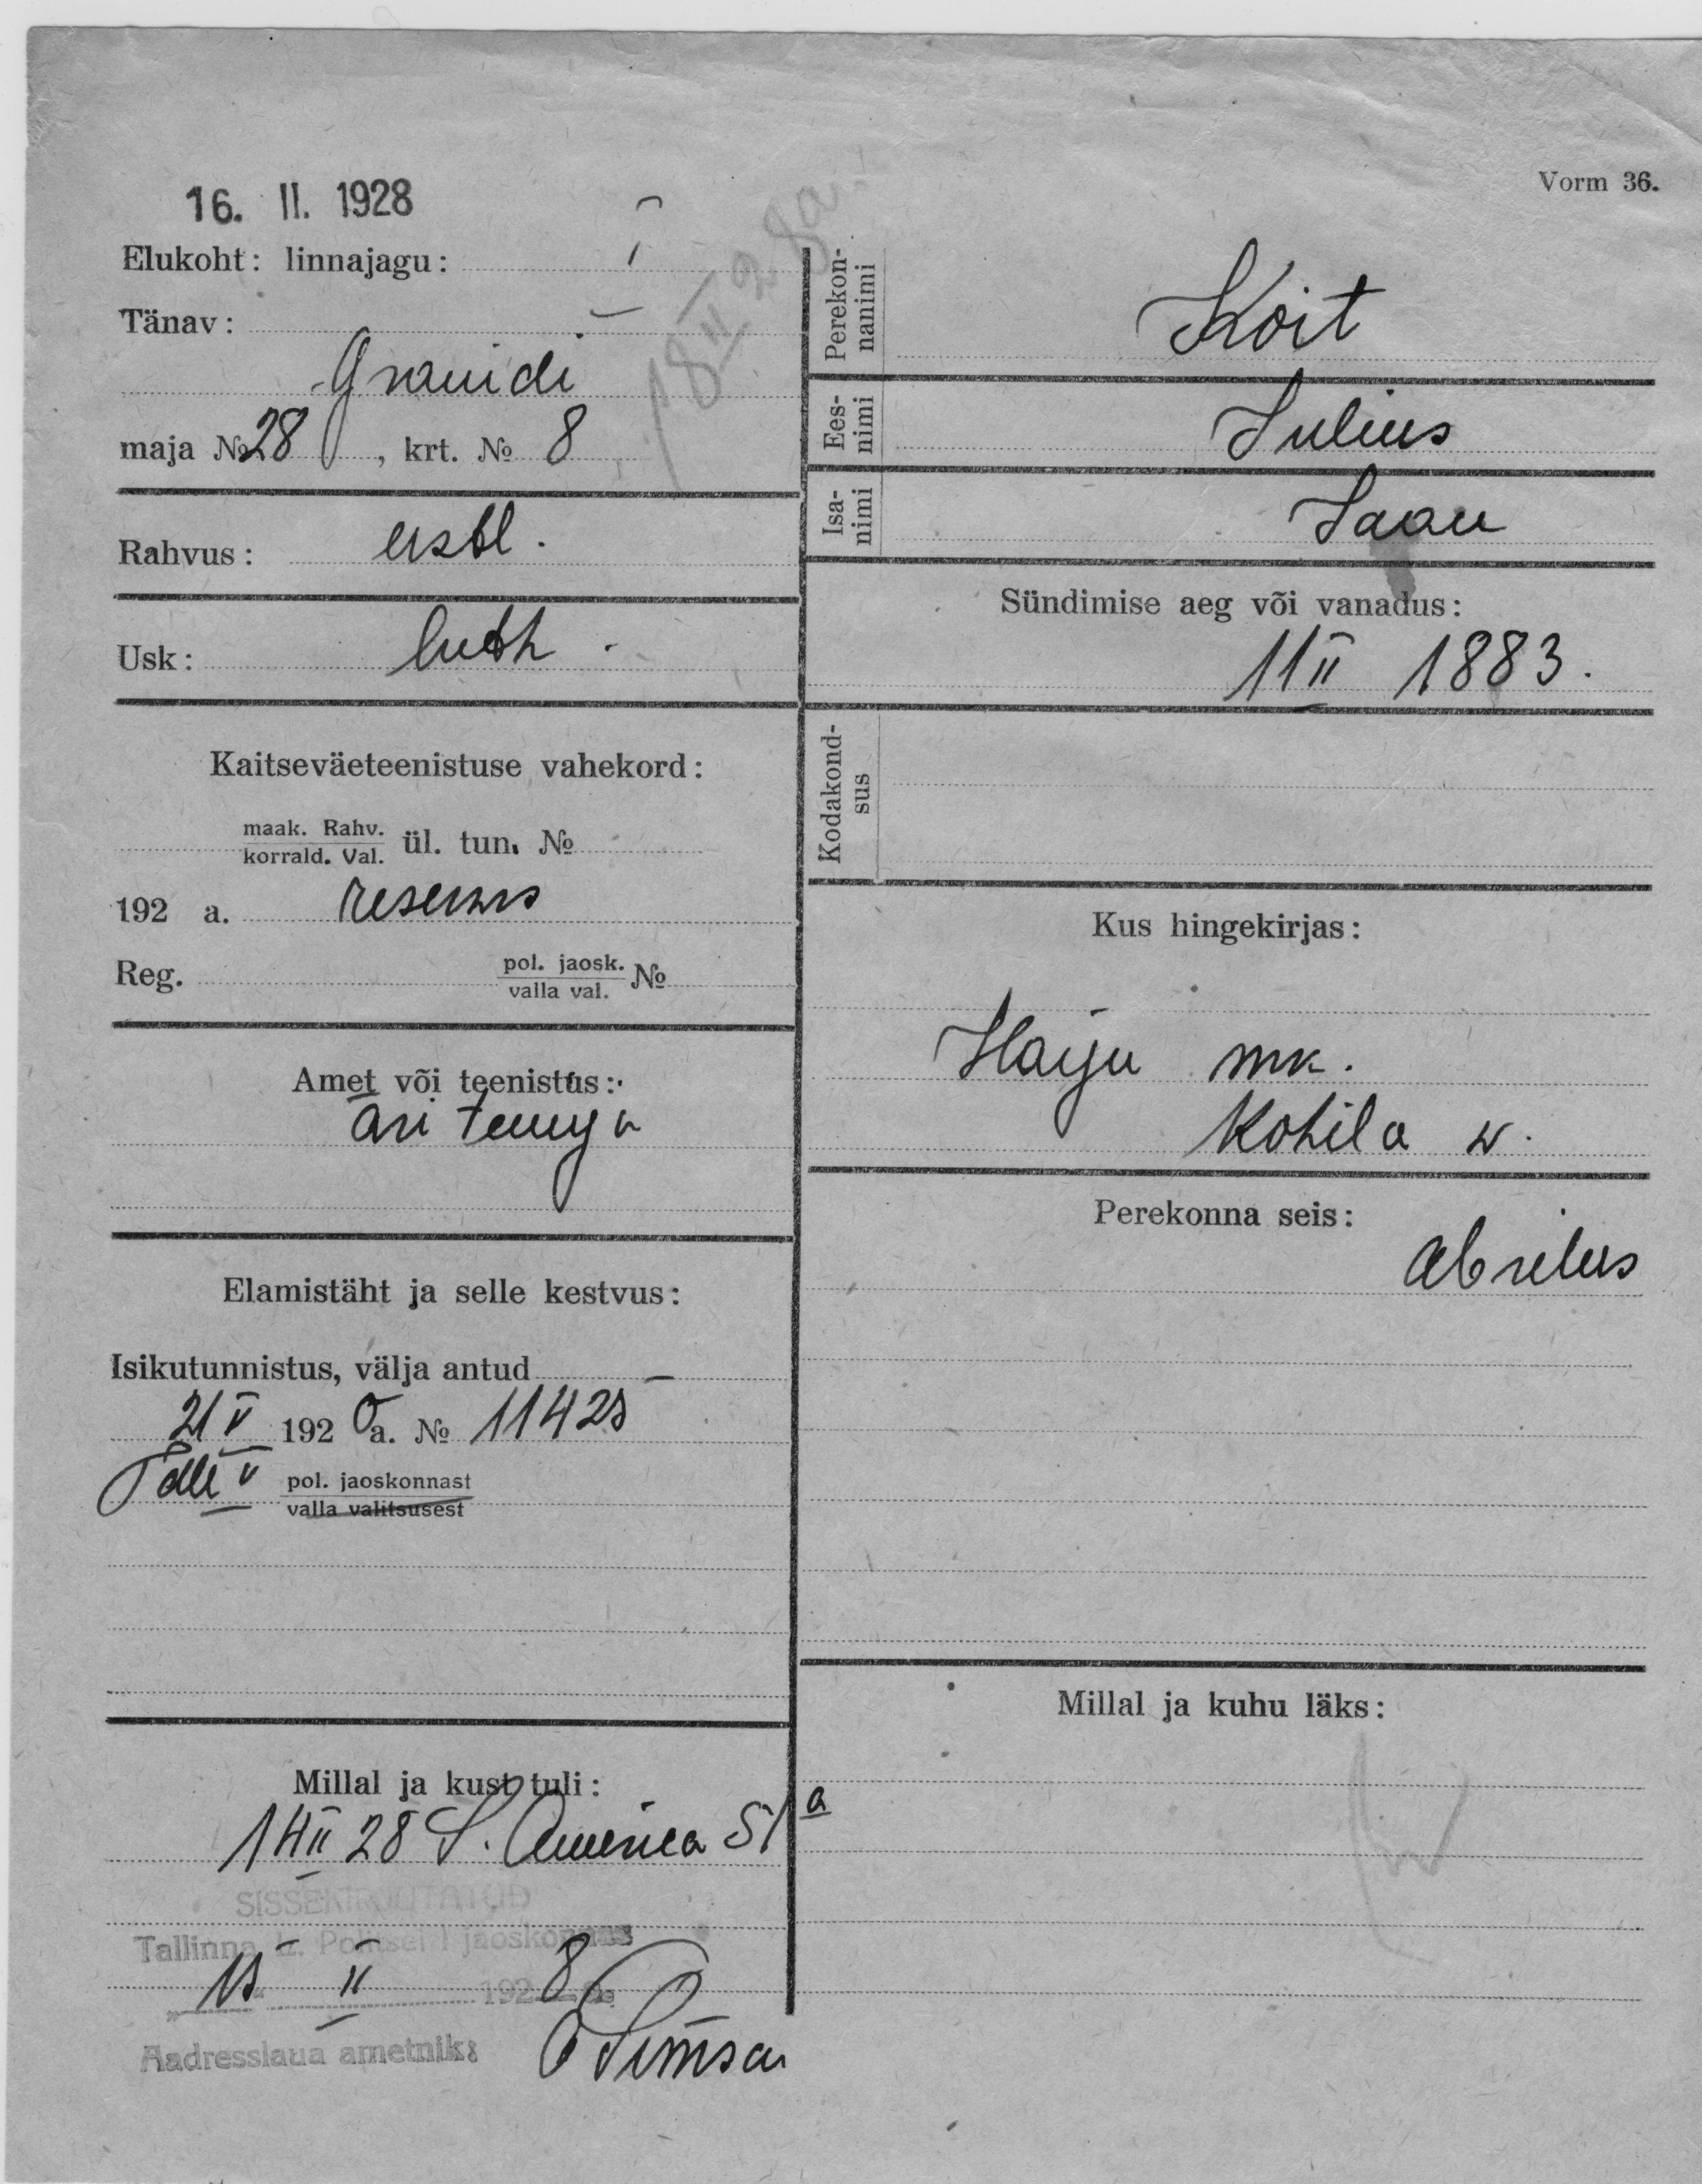 16. II. 1928
Vorm 36.
Elukoht: linnajagu: I
Tänav:
Graniidi
maja № 28, krt. № 8
18 II 28a
Rahvus: eestl.
Usk: luth.
Kaitseväeteenistuse vahekord:
maak. Rahv.
korrald. Val. ül. tun. №
192 a. reservis
Reg. pol. jaosk.
valla val. №
Amet või teenistus:
äri teenija
Elamistäht ja selle kestvus:
Isikutunnistus, välja antud
21 V 1920 a. № 11425
Tall. V pol. jaoskonnast
valla valitsusest
Millal ja kust tuli:
14 II 28 S. America 51 a
SISSEKIRJUTATUD
Tallinna L. Politsei I jaoskonnas
15 II 1928 a.
Aadresslaua ametnik:
Perekon-
nanimi
Koit
Ees-
nimi
Julius
Isa-
nimi
Jaan
Sündimise aeg või vanadus:
11 II 1883.
Kodakond-
sus
Kus hingekirjas:
Harju mk.
Kohila w.
Perekonna seis:
abielus
Millal ja kuhu läks: